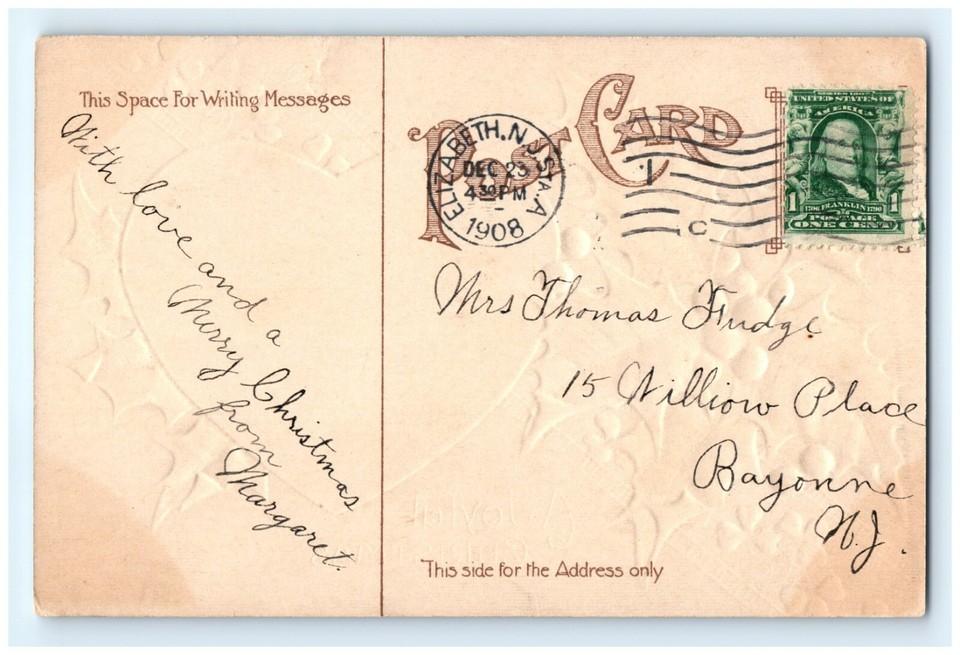 This Space For Writing Messages
With love and a
Merry Christmas
from
Margaret.
POST CARD
ELIZABETH, N.J. STA. A
DEC 23
4 30 PM
1908
1
C
SERIES 1902
UNITED STATES OF
AMERICA
1 1
1706 FRANKLIN 1790
POSTAGE
ONE CENT
Mrs Thomas Fudge
15 Williow Place
Bayonne
N.J.
This side for the Address only